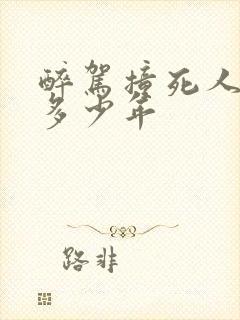 醉驾撞死人
多少年
路非